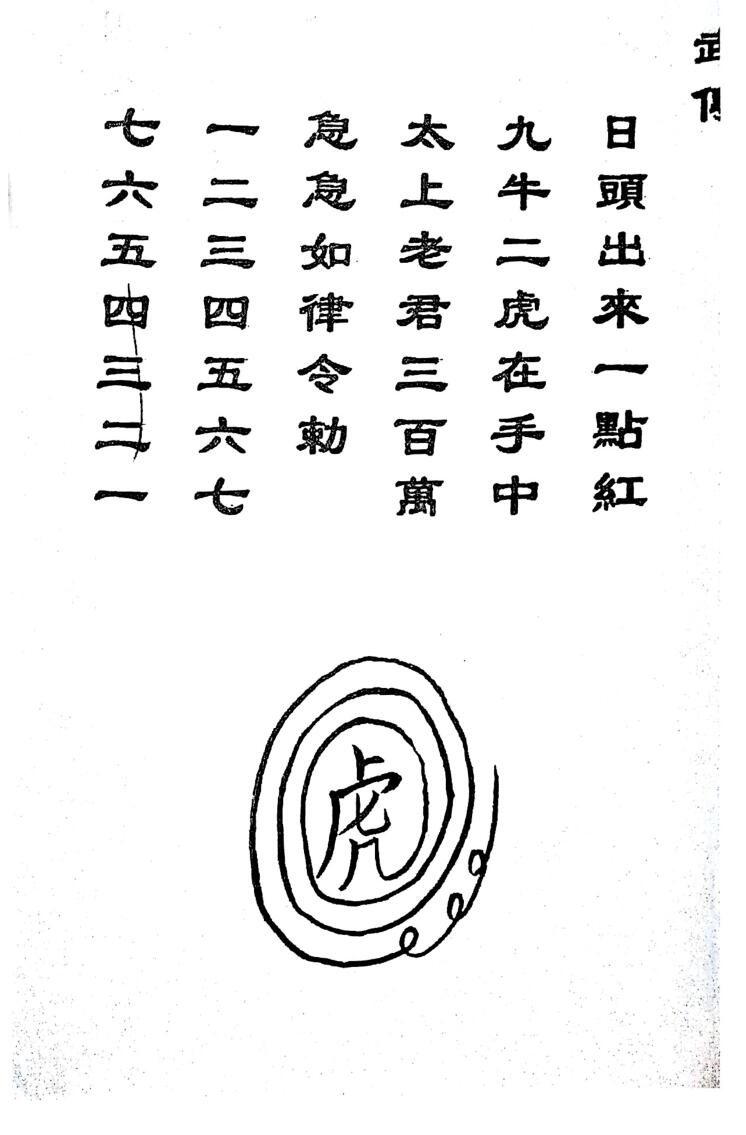 武
日頭出來一點紅
九牛二虎在手中
太上老君三百萬
急急如律令勅
一二三四五六七
七六五四三二一
虎